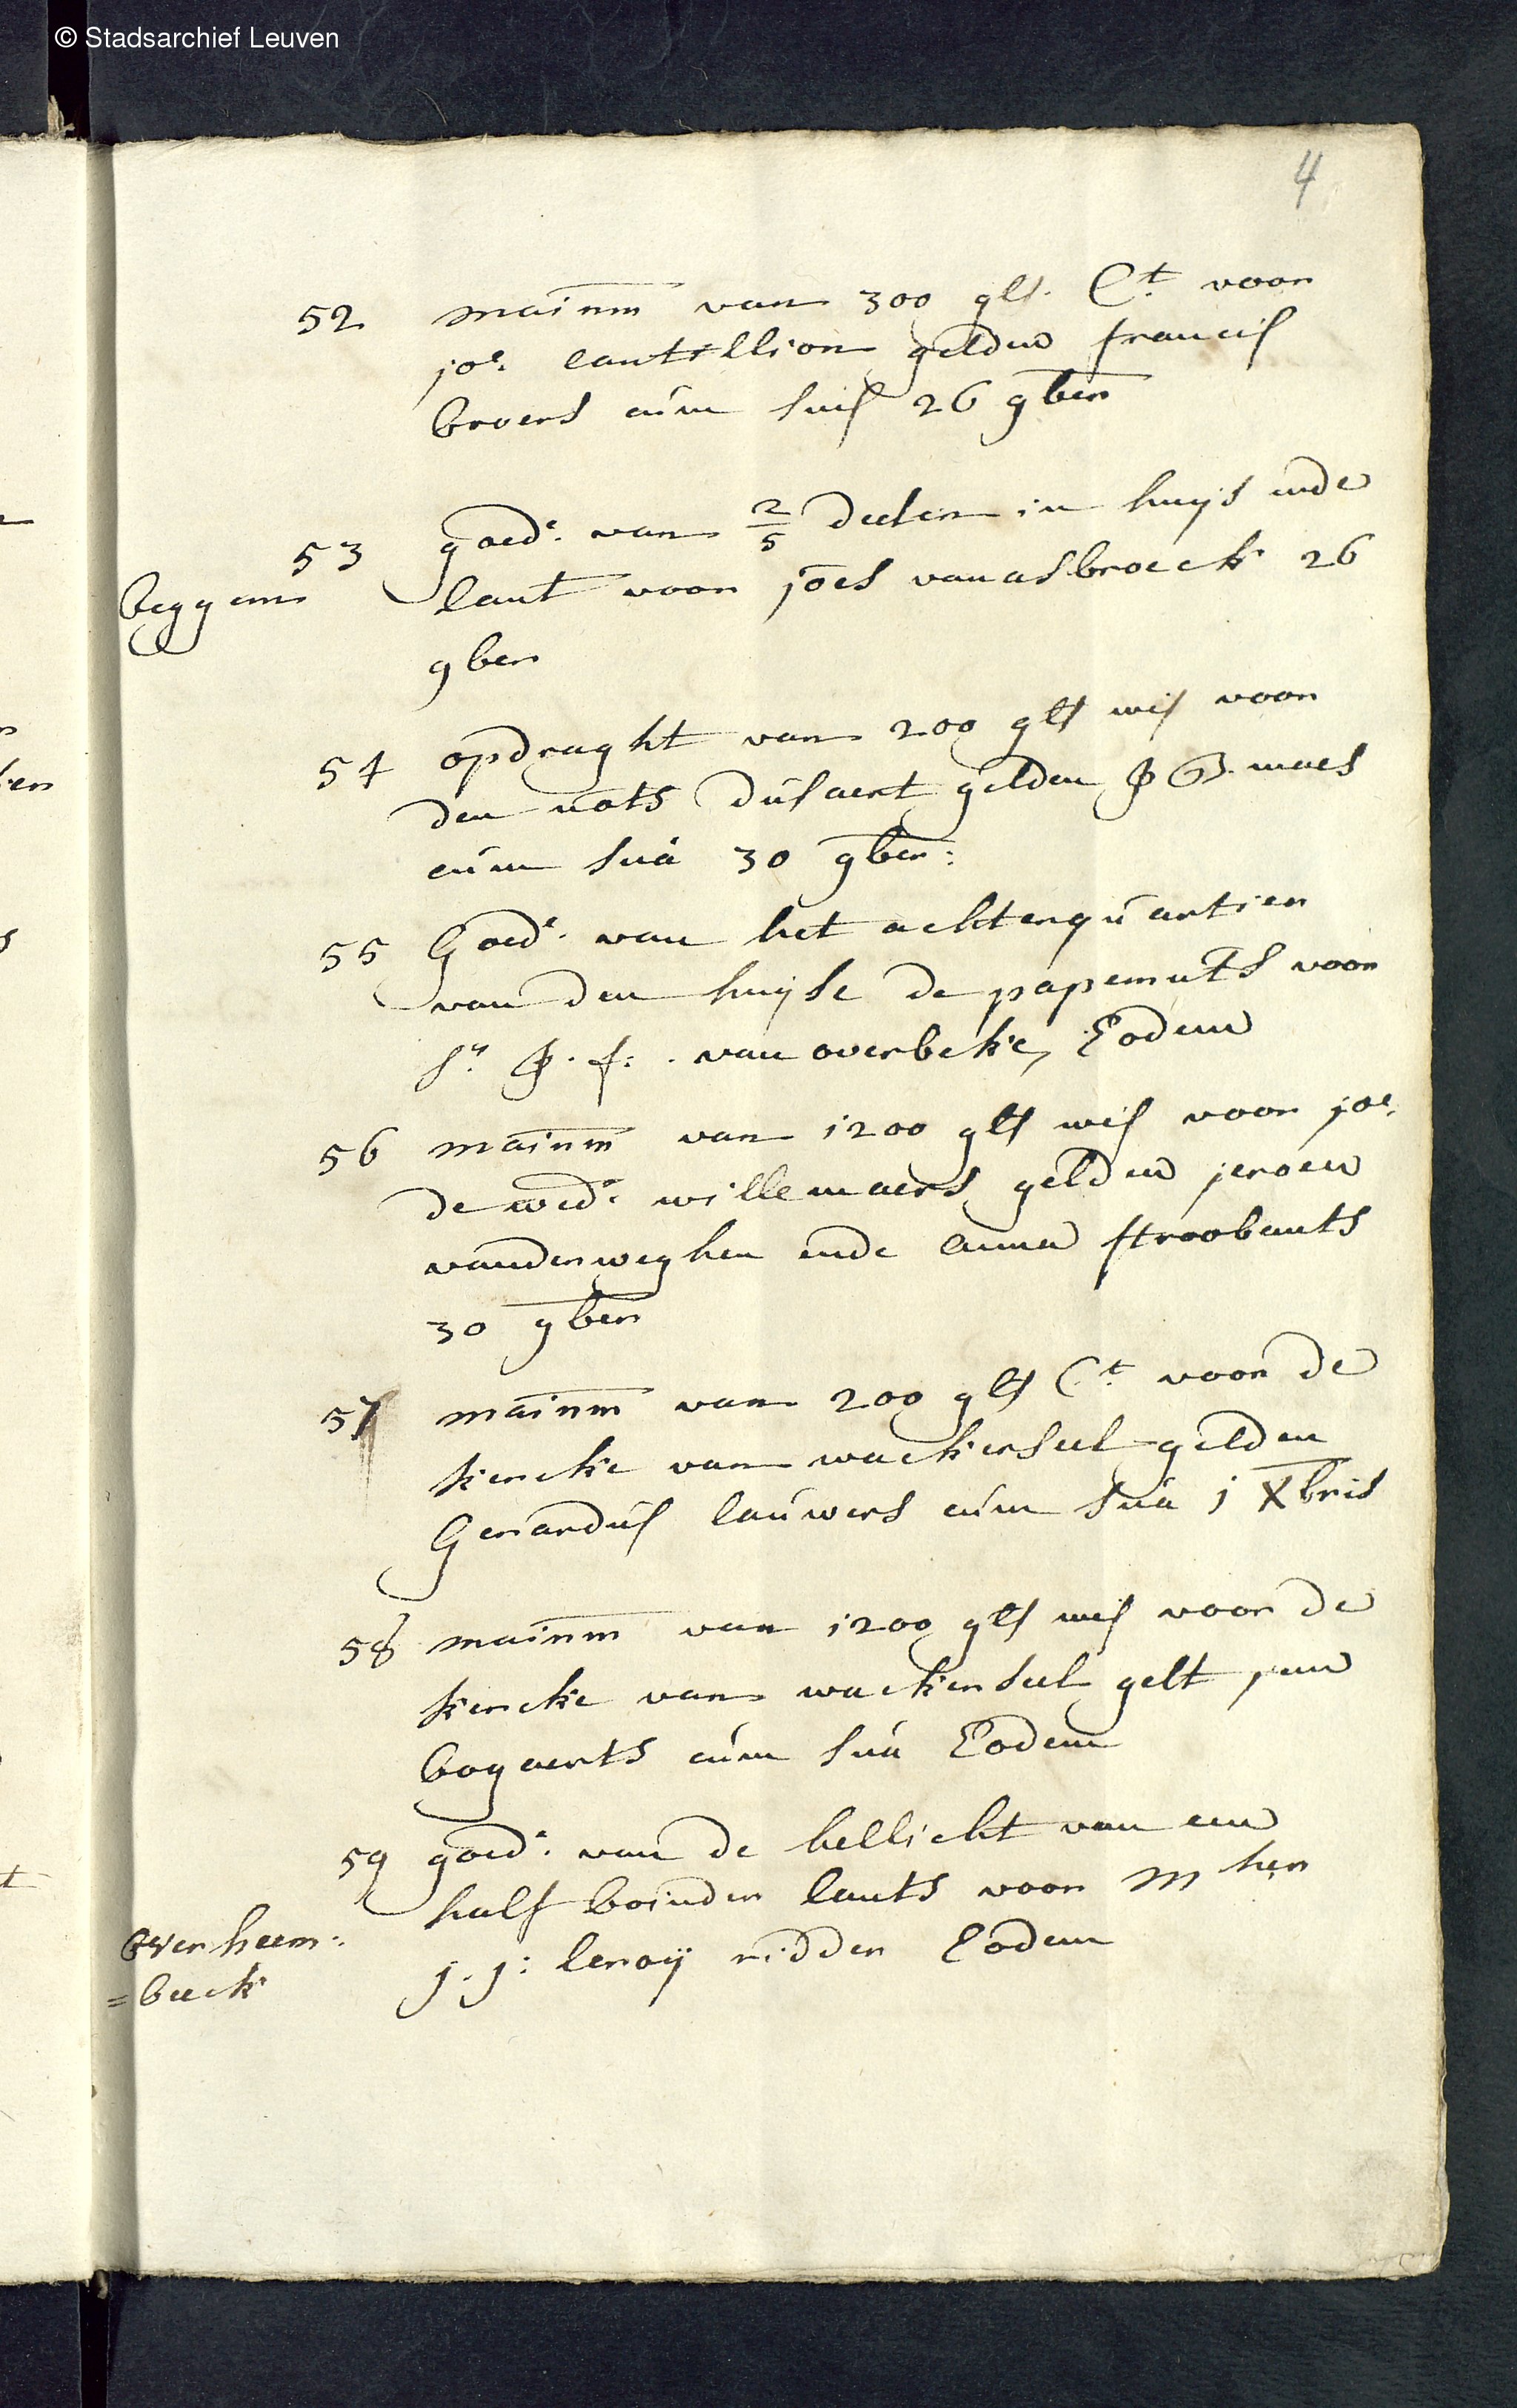 © Stadsarchief Leuven
4
52 mainm van 300 gls. Ct. voor
joe. cantillion gelden francis
broers cum suis 26 9ber
53 goed.e van 2/5 deelen in huijs ende
beggem
lant voor joes van asbroeck 26
9ber
54 opdraght van 200 gls wis voor
den nots dusaert gelden P B. maes
cum sua 30 9ber:
55 Goed.e van het achterquartier
van den huijse de papemuts voor
Sr. P. f: van overbeke, Eodem
56 mainm van 1200 gls wis voor joe.
de wed.e willemaers gelden jeroen
vanderweghen ende anna stroobants
30 9ber
57 mainm van 200 gls Ct. voor de
kercke van wackerseel gelden
Gerardus lauwers cum sua j Xbris
58 mainm van 1200 gls wis voor de
kercke van wackerseel gelt jan
bogaerts cum sua Eodem
59 goed.e van de hellicht van een
half boinder lants voor Mher
overheem:
j. j: leroij ridder Eodem
=beeck